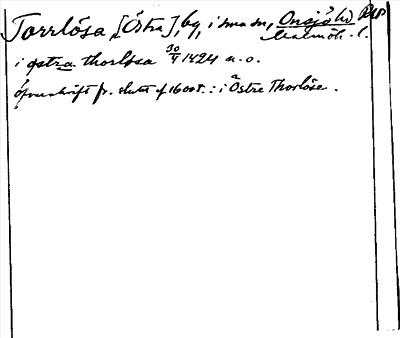 Torrlösa, [Östra], by, i sn m sn, Onsjö hd
Malmöh. l.
i östra thorlösa 30/4 1424 u. o.
öfverskrift fr. slutet af 1600t.: i Östre Thorlöse.